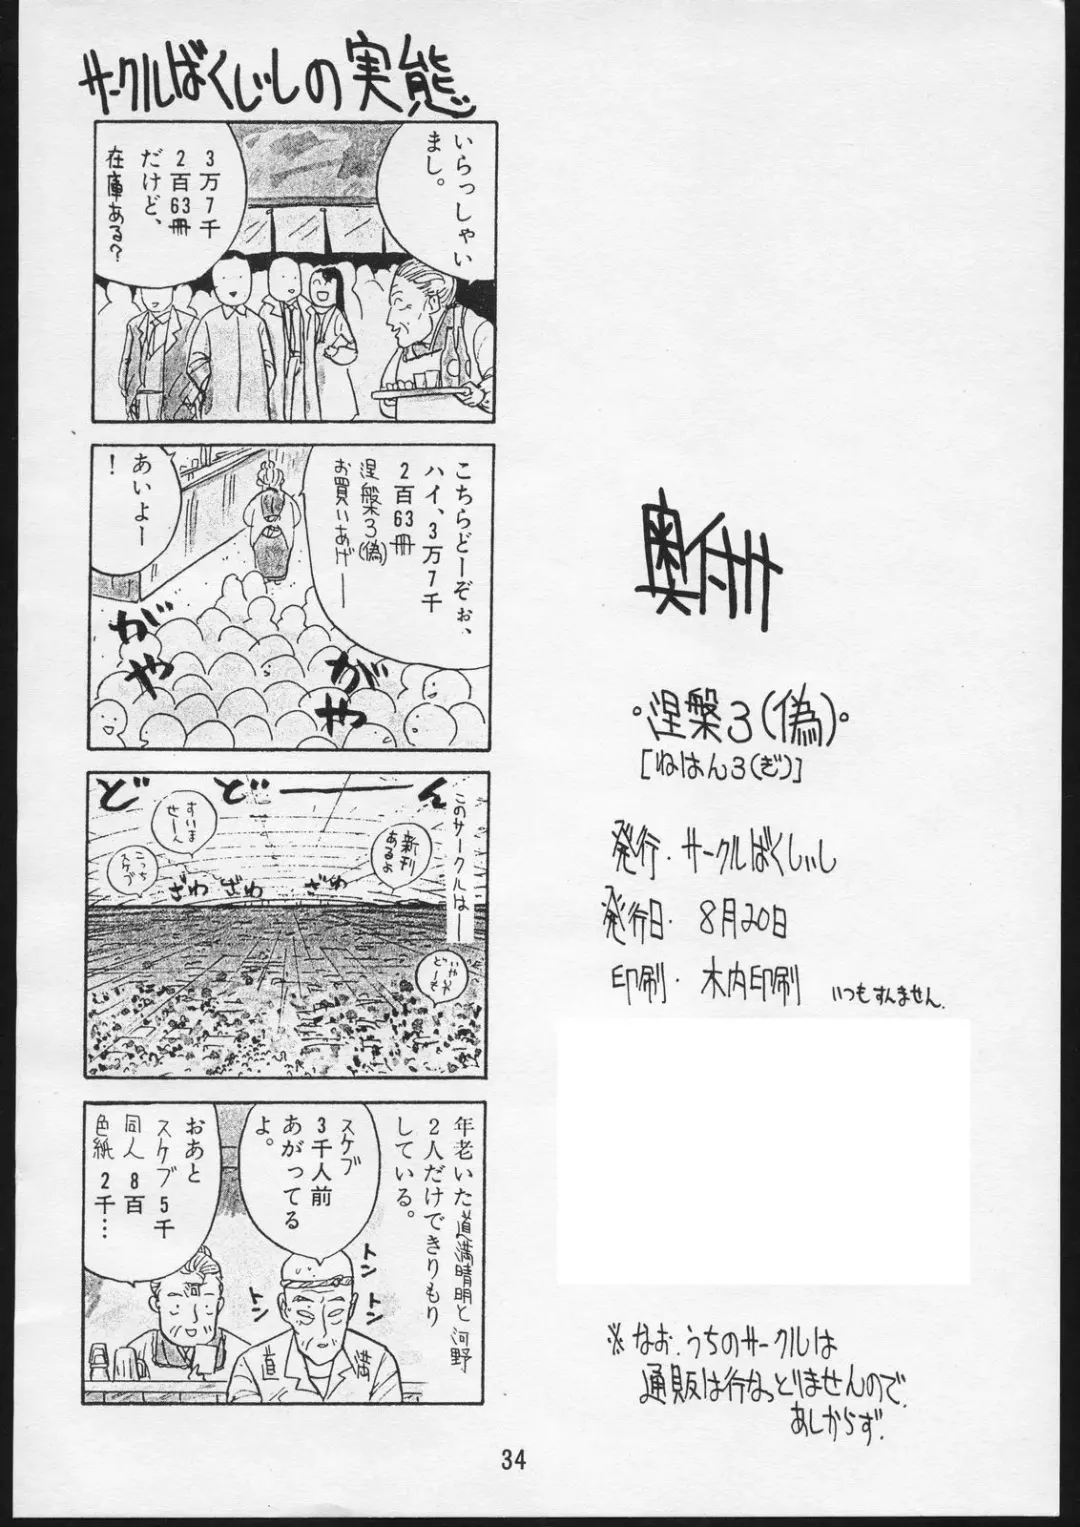 サークルばくじしの実態
いらっしゃい
まし。
3万7千
2百63冊
だけど、
在庫ある?
こちらどーぞぉ、
ハイ、3万7千
2百63冊
涅槃3(偽)
お買いあげ――
あいよー
!
がや
がや
ど ど――ん
このサークルは――
新刊
あるよ
すいま
せーん
こっち
スケブ
ざわ ざわ ざわ
いやぁ
どーも
年老いた道満晴明と河野
2人だけできりもり
している。
スケブ
3千人前
あがってる
よ。
おあと
スケブ5千
同人8百
色紙2千…
トン
トン
トン
河
道 満
奥付
・涅槃3(偽)・
[ねはん3(ぎ)]
発行・サークルばくじし
発行日・8月20日
印刷・木内印刷 いつもすんません。
※なお、うちのサークルは
通販は行なっとりませんので、
あしからず。
34